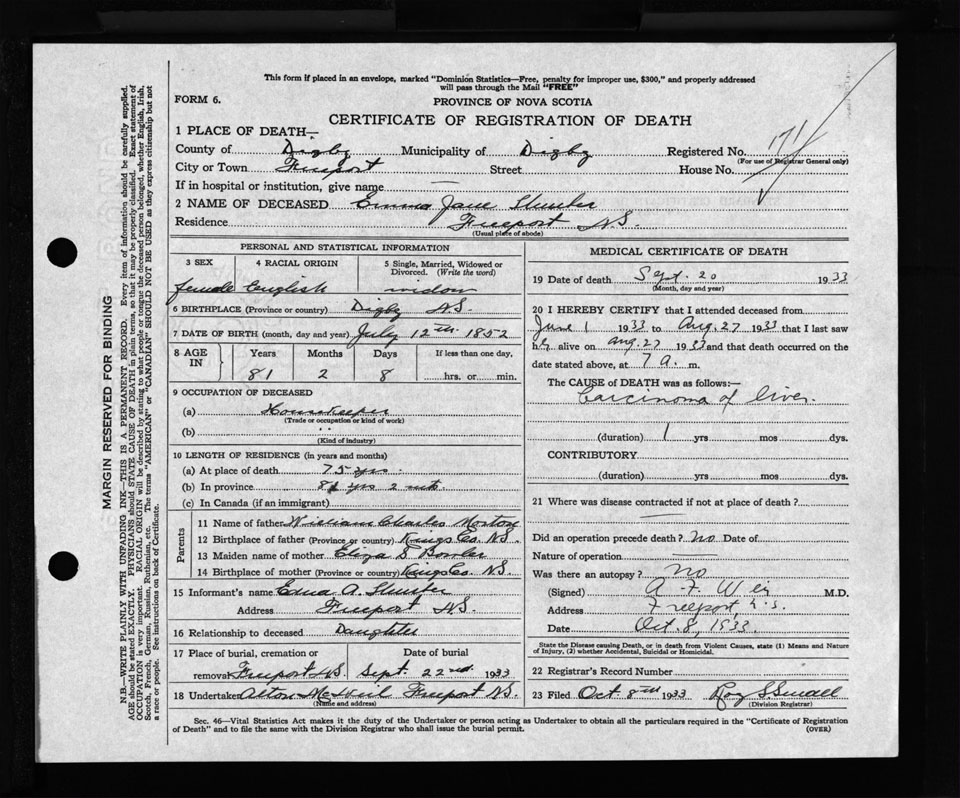 This form if placed in an envelope, marked "Dominion Statistics—Free, penalty for improper use, $300," and properly addressed
will pass through the Mail "FREE"
FORM 6.
PROVINCE OF NOVA SCOTIA
CERTIFICATE OF REGISTRATION OF DEATH
1 PLACE OF DEATH—
County of Digby Municipality of Digby Registered No. 171
(For use of Registrar General only)
City or Town Freeport Street House No.
If in hospital or institution, give name —
2 NAME OF DECEASED Emma Jane
Residence Freeport N.S.
(Usual place of abode)
PERSONAL AND STATISTICAL INFORMATION
3 SEX 4 RACIAL ORIGIN 5 Single, Married, Widowed or
Divorced. (Write the word)
female English widow
6 BIRTHPLACE (Province or country) Digby N.S.
7 DATE OF BIRTH (month, day and year) July 12th 1852
8 AGE IN Years Months Days If less than one day,
81 2 8 hrs. or min.
9 OCCUPATION OF DECEASED
(a) Housekeeper
(Trade or occupation or kind of work)
(b) " "
(Kind of industry)
10 LENGTH OF RESIDENCE (in years and months)
(a) At place of death 75 yrs.
(b) In province 81 yrs 2 mts
(c) In Canada (if an immigrant)
Parents
11 Name of father William Charles Morton
12 Birthplace of father (Province or country) Kings Co. N.S.
13 Maiden name of mother Eliza S
14 Birthplace of mother (Province or country) Kings Co. N.S.
15 Informant's name Edna A.
Address Freeport N.S.
16 Relationship to deceased Daughter
17 Place of burial, cremation or Date of burial
removal Freeport N.S. Sept. 22nd 1933
18 Undertaker Alton Freeport N.S.
(Name and address)
MEDICAL CERTIFICATE OF DEATH
19 Date of death Sept. 20 1933
(Month, day and year)
20 I HEREBY CERTIFY that I attended deceased from
June 1 1933 to Aug. 27 1933 that I last saw
her alive on Aug. 27 1933 and that death occurred on the
date stated above, at 7 a. m.
The CAUSE of DEATH was as follows:—
Carcinoma of liver
(duration) 1 yrs mos dys.
CONTRIBUTORY
(duration) yrs mos dys.
21 Where was disease contracted if not at place of death?
—
Did an operation precede death? no Date of
Nature of operation —
Was there an autopsy? no
(Signed) A F Weir M.D.
Address Freeport, N.S.
Date Oct. 8, 1933
State the Disease causing Death, or in death from Violent Causes, state (1) Means and Nature
of Injury, (2) whether Accidental, Suicidal or Homicidal.
22 Registrar's Record Number
23 Filed Oct 8th 1933 Roy S Small
(Division Registrar)
Sec. 46—Vital Statistics Act makes it the duty of the Undertaker or person acting as Undertaker to obtain all the particulars required in the "Certificate of Registration
of Death" and to file the same with the Division Registrar who shall issue the burial permit. (OVER)
MARGIN RESERVED FOR BINDING
N.B.—WRITE PLAINLY WITH UNFADING INK—THIS IS A PERMANENT RECORD. Every item of information should be carefully supplied.
AGE should be stated EXACTLY. PHYSICIANS should STATE CAUSE OF DEATH in plain terms, so that it may be properly classified. Exact statement of
OCCUPATION is very important. RACIAL ORIGIN will be described by stating to what people or tongue the deceased person belonged, whether English, Irish,
Scotch, French, German, Russian, Ruthenian, etc. The terms "AMERICAN" or "CANADIAN" SHOULD NOT BE USED as they express citizenship but not
a race or people. See instructions on back of Certificate.